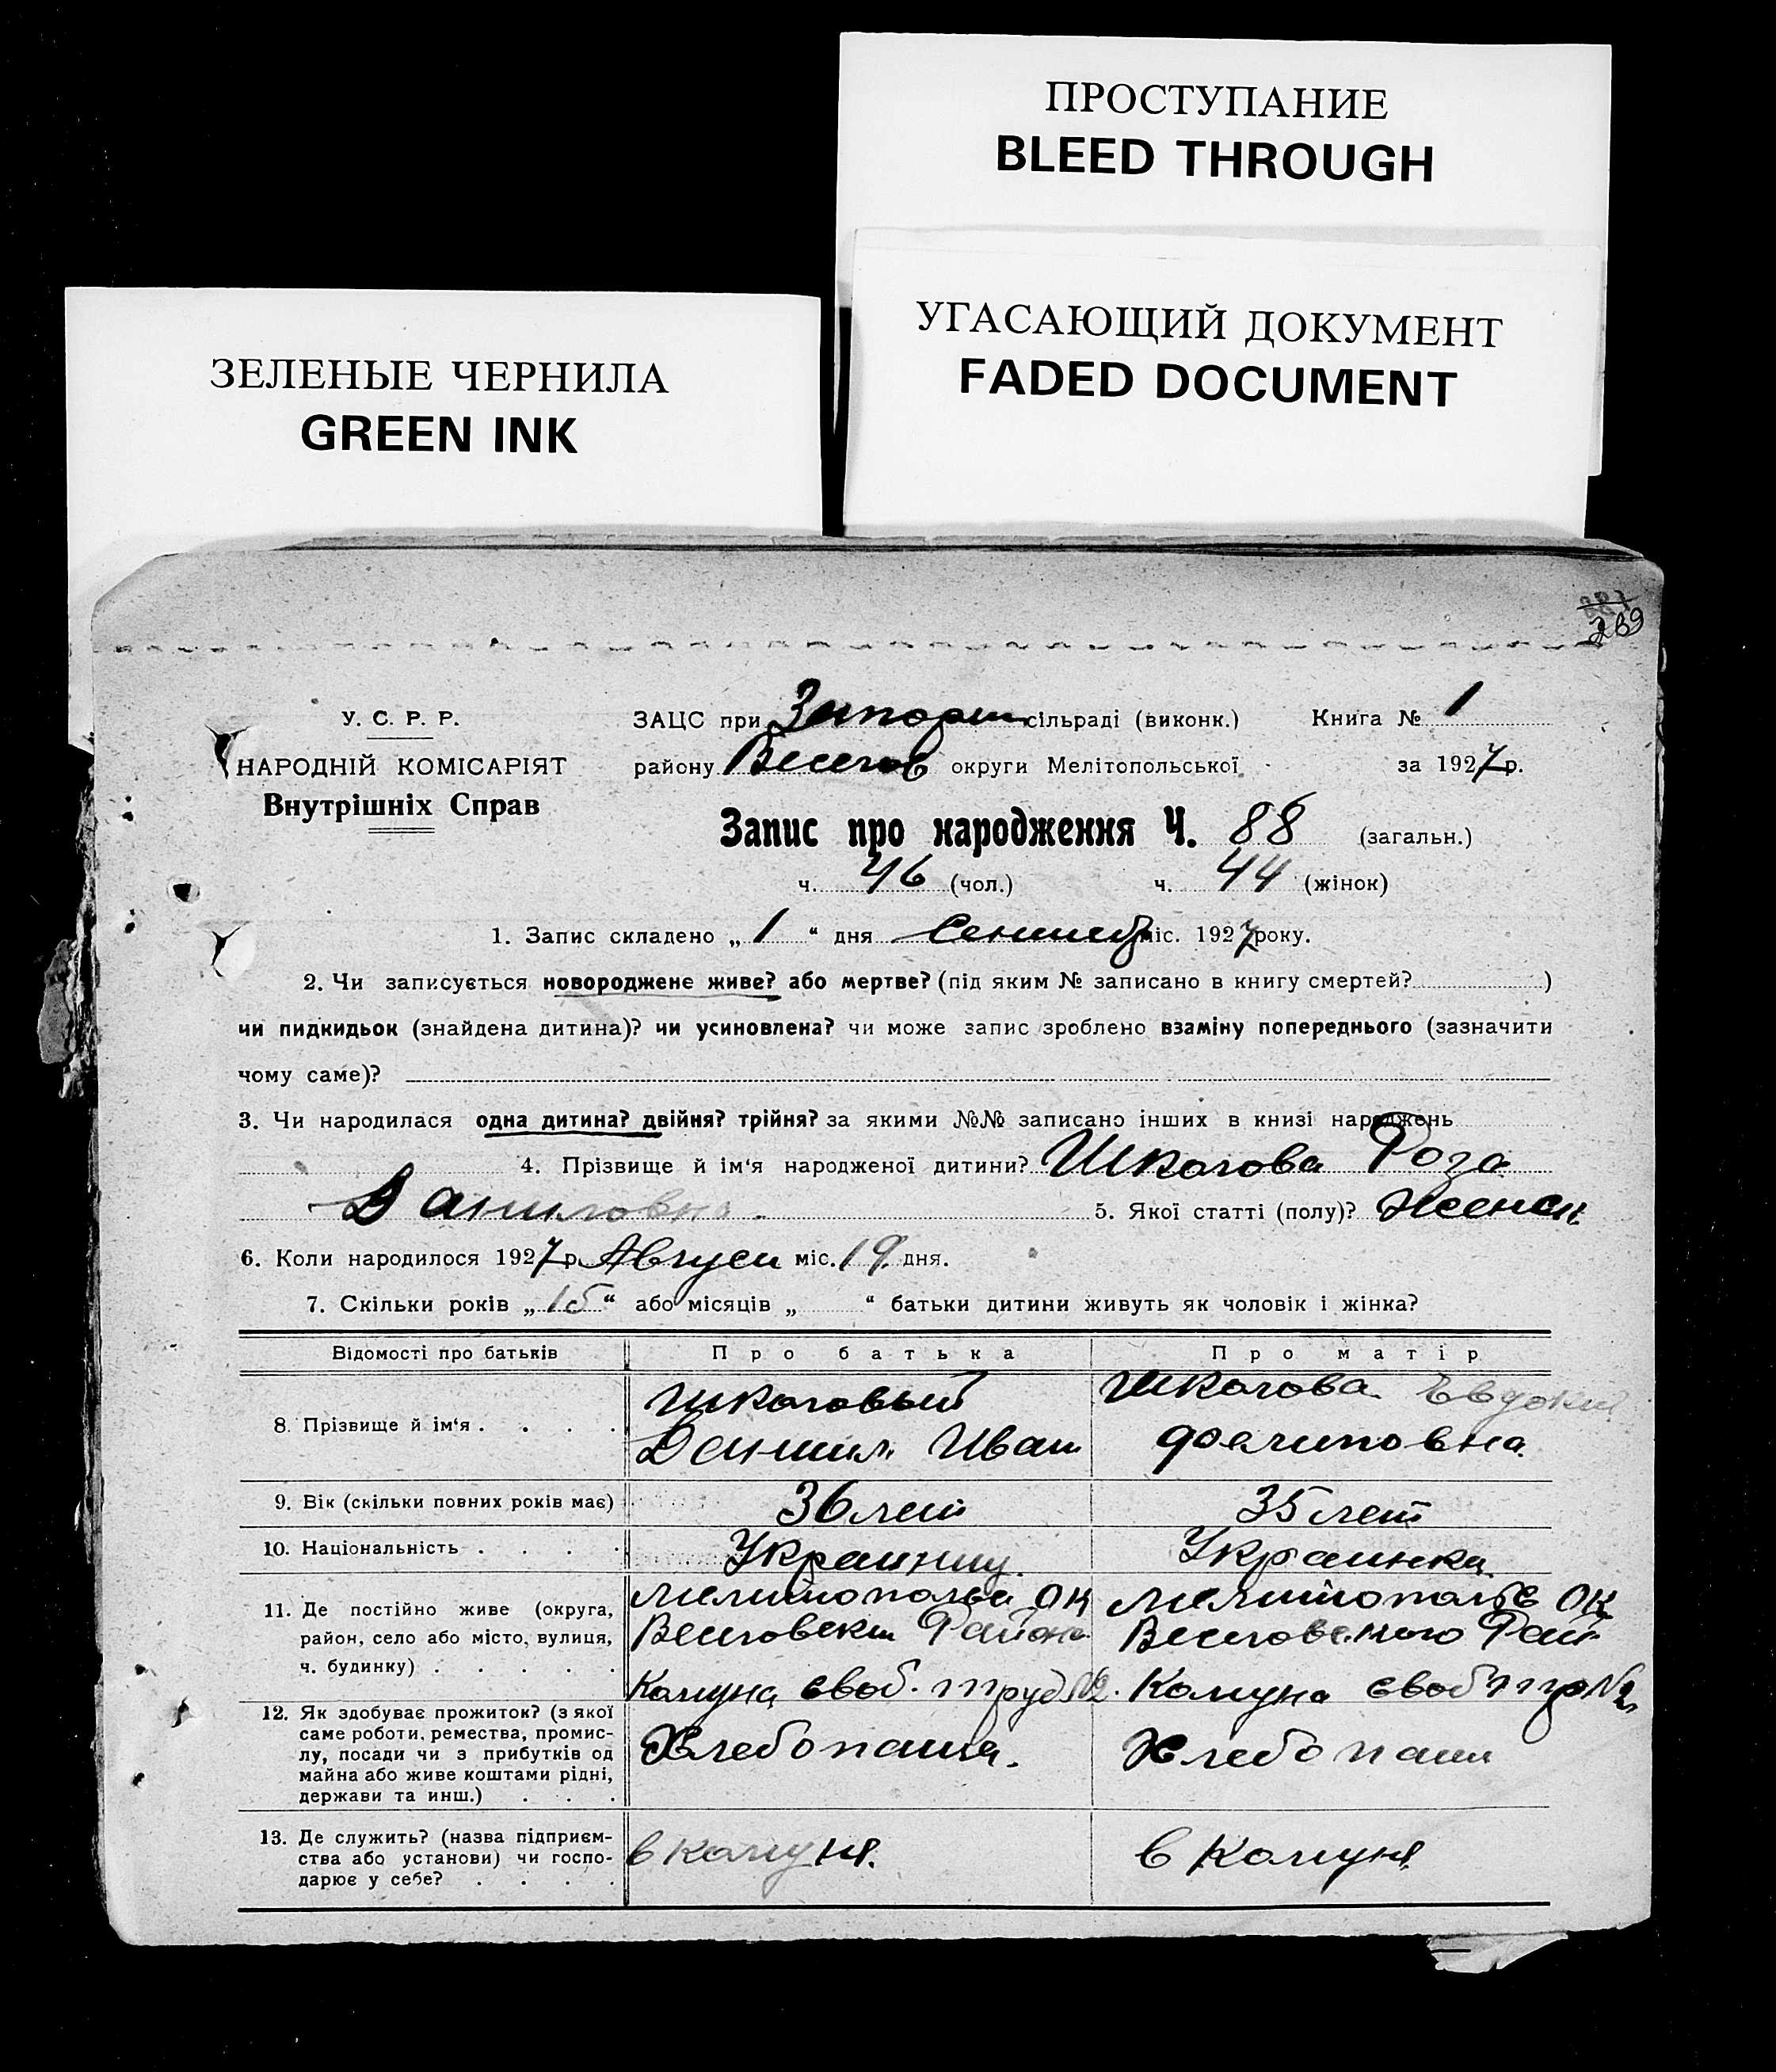 ПРОСТУПАНИЕ
BLEED THROUGH
УГАСАЮЩИЙ ДОКУМЕНТ
FADED DOCUMENT
ЗЕЛЕНЫЕ ЧЕРНИЛА
GREEN INK
289
У. С. Р. Р.
НАРОДНІЙ КОМІСАРІЯТ
Внутрішніх Справ
ЗАЦС при сільраді (виконк.) Книга № 1
району Веселов округи Мелітопольської за 1927 р.
Запис про народження Ч. 88 (загальн.)
ч. 46 (чол.) ч. 44 (жінок)
1. Запис складено „ 1 “ дня міс. 1927 року.
2. Чи записується новороджене живе? або мертве? (під яким № записано в книгу смертей? )
чи пидкидьок (знайдена дитина)? чи усиновлена? чи може запис зроблено взаміну попереднього (зазначити
чому саме)?
3. Чи народилася одна дитина? двійня? трійня? за якими №№ записано інших в книзі народжень
4. Прізвище й ім‘я народженої дитини? Шкогова Роза
Даниловна 5. Якої статті (полу)? Женск
6. Коли народилося 1927 р. Август міс. 19 дня.
7. Скільки років „ 15 “ або місяців „ “ батьки дитини живуть як чоловік і жінка?
Відомості про батьків Про батька Про матір
8. Прізвище й ім‘я . . . . Шкоговый Данил Иван Шкогова Евдоки Филиповна
9. Вік (скільки повних років має) 36 лет 35 лет
10. Національність . . . . Украинец. Украинка.
11. Де постійно живе (округа, Мелитопольс ок Мелитопольс ок
район, село або місто, вулиця, Веселовски Района Веселовского Рай
ч. будинку) . . . . . Комуна своб. труд №2. Комуна своб тру №2
12. Як здобуває прожиток? (з якої
саме роботи, ремества, промис-
лу, посади чи з прибутків од Хлебопаша. Хлебопаш
майна або живе коштами рідні,
держави та инш.) . . .
13. Де служить? (назва підприєм-
ства або установи) чи госпо- в Комуне. в Комуне
дарює у себе? . . . .